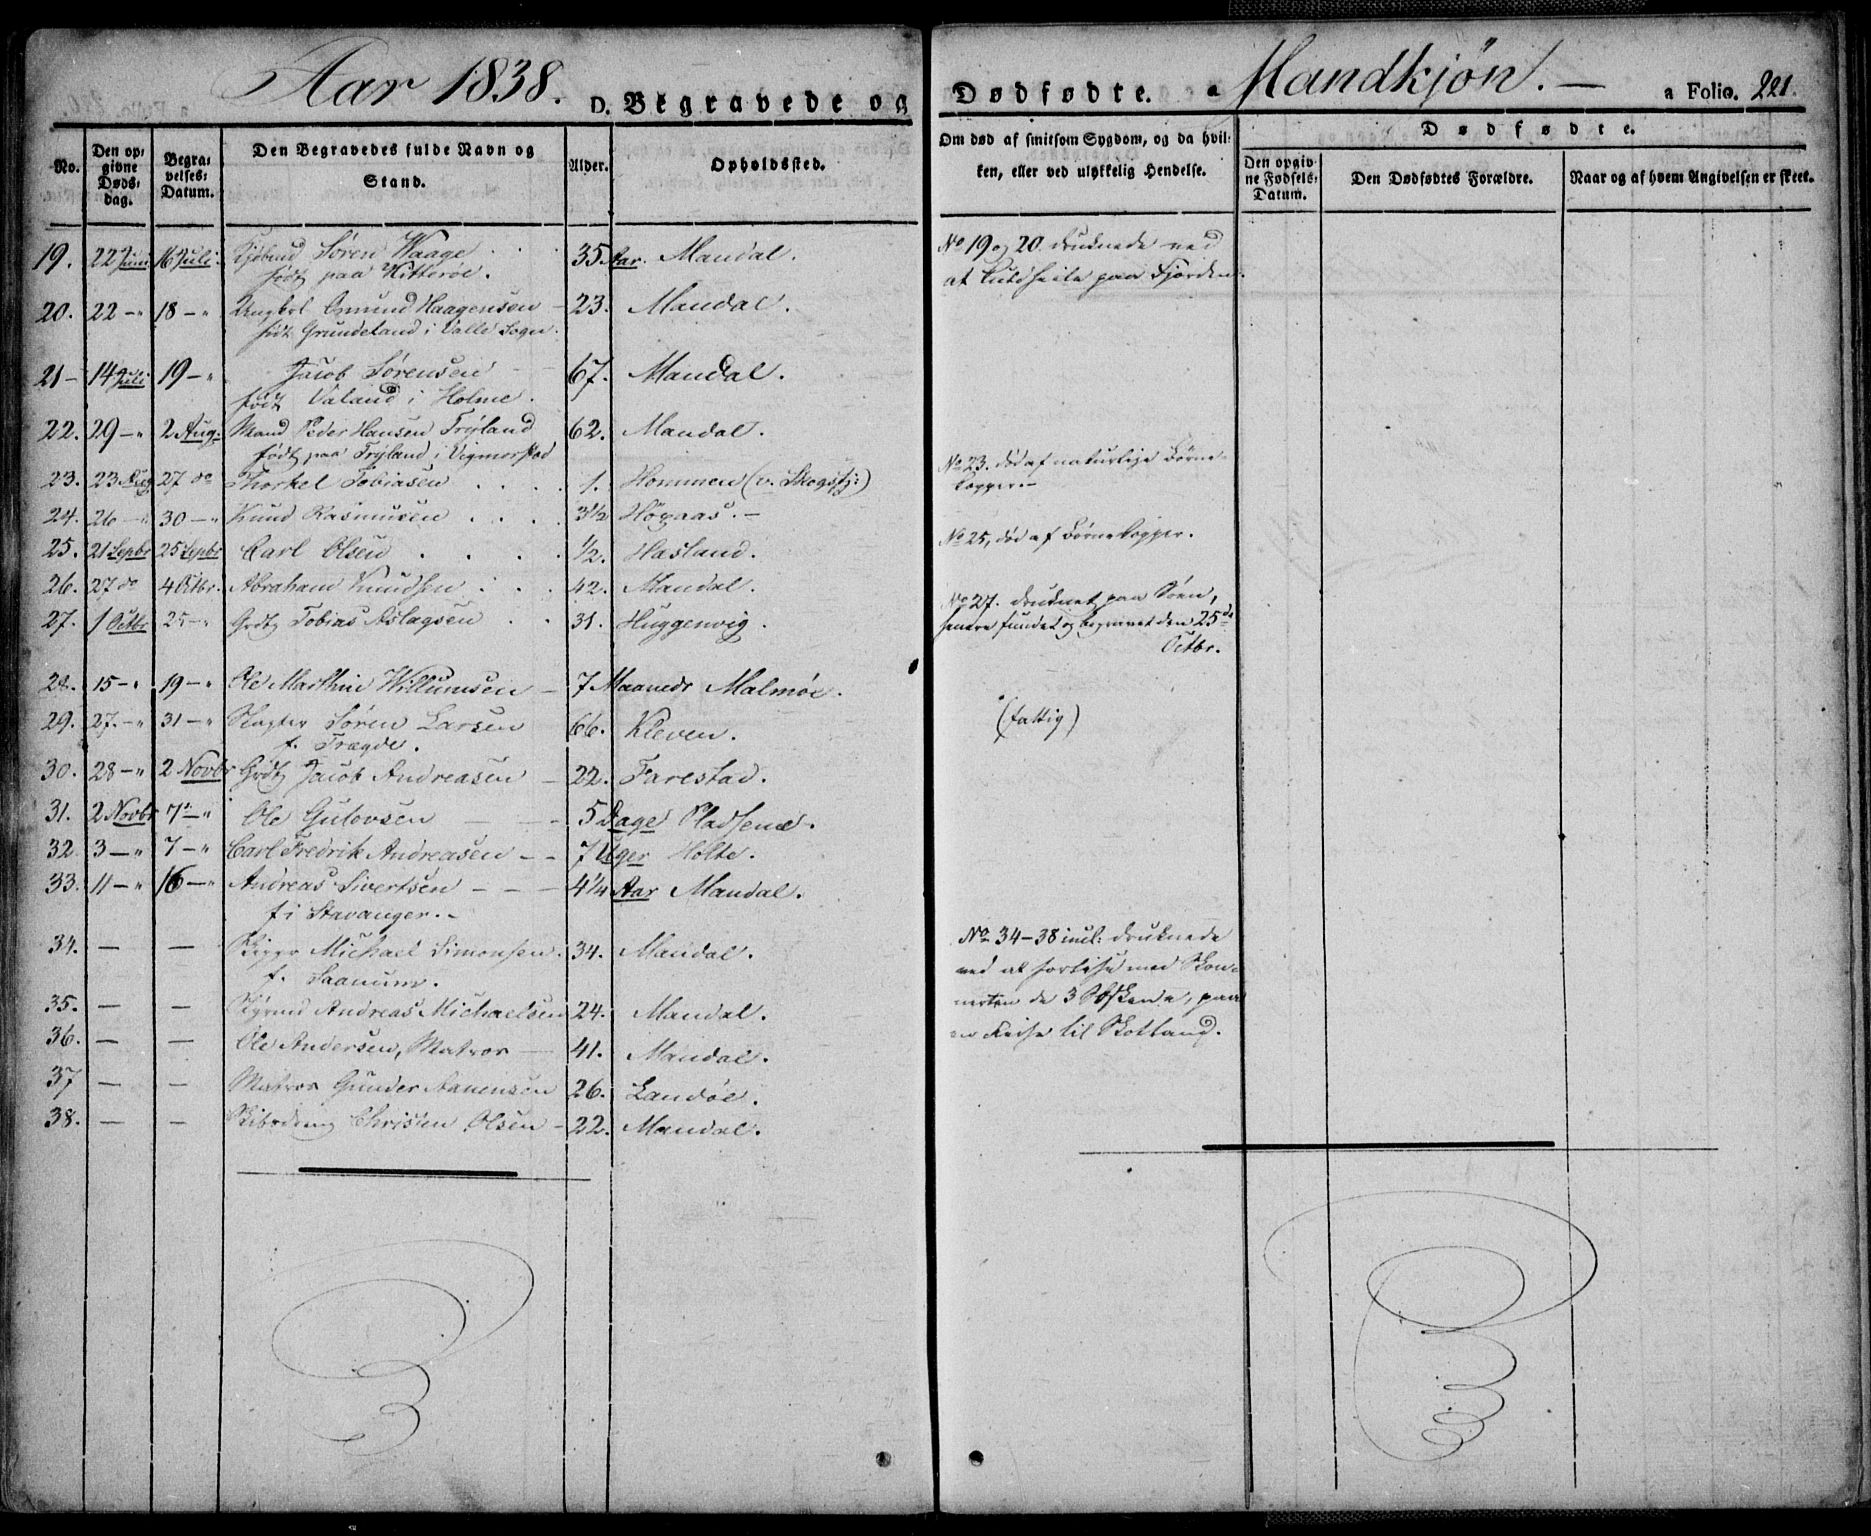 Aar 1838.
D. Begravede og
Dødfødte.
Mandkjøn. —
a Folio. 221.
No.
Den opgivne Dødsdag.
Begravelses-Datum.
Den Begravedes fulde Navn og Stand.
Alder.
Opholdssted.
Om død af smitsom Sygdom, og da hvilken, eller ved ulykkelig Hendelse.
Dødfødte.
Den opgivne Fødsels-Datum.
Den Dødfødtes Forældre.
Naar og af hvem Angivelsen er skeet.
19. 22 Juni 16 Juli Søren Waage 35 Aar. Mandal.
født paa Hitterøe.
No 19 og 20 druknede ved
paa Fjorden.
20. 22 - " 18 - " Ungkel Omund Haagensen 23. Mandal.
født Grundeland i Valle Sogn.
21 - 14 Juli 19 - " Jacob Sørensen 67. Mandal.
født Valand i Holme.
22. 29 - " 2 Aug. Mand Peder Hansen Tryland 62. Mandal.
født paa Tryland i Vigmorstad
23. 23 Aug 27 do Thorkel Tobiasen 1. Hommen (v. Skogsfj:)
No 23. død af naturlige Børne-
kopper.-
24. 26 - " 30 - " Knud Rasmusen 3½ Høyaas.-
25. 21 Septbr 25 Septbr Carl Olsen ½. Hasland.
No 25, død af Børnekopper.
26. 27 do 4 Octbr. Abraham Knudsen 42. Mandal.
27. 1 Octbr 25 - " Tobias Aslagsen 31. Huggenvig.
No 27. druknet paa Søen,
senere fundet og begravet den 25de
Octbr.
28. 15 - " 19 - " Ole Marthin Willumsen - 7 Maaneder Malmøe.
29. 27. - " 31 - " Søren Larsen 66. Kleven.
f. Trægde.
(fattig)
30. 28 - " 2 Novbr Jacob Andreasen - 22. Farestad.
31. 2 Novbr 7 - " Ole Gulovsen - 5 Dage Pladsene.
32 3 - " 7 - " Carl Fredrik Andreasen - - 7 Uger Holte.
33. 11 - " 16 - " Andreas Sivertsen - - - 4¼ Aar Mandal.
f i Stavanger.-
34. — — Michael Simonsen. 34. Mandal.
f. Saanum.
No 34-38 incl: druknede
ved at forlise med Skon-
nerten de 3 Søskende, paa
en Reise til Skotland.
35. — — Styrmd Andreas Michaelsen 24. Mandal.
36. — — Ole Andersen, Matros — 41. Mandal.
37 — — Matros Gunder Aanensen 26. Landøe.
38. — — Christen Olsen - 22. Mandal.